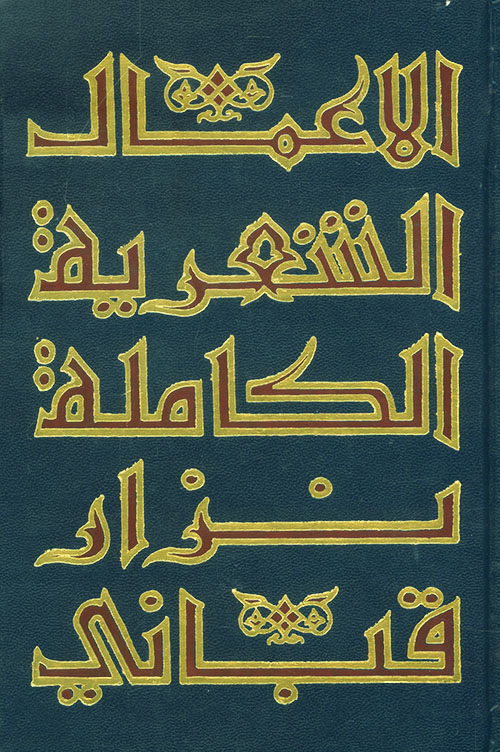 الاعمال
الشعرية
الكاملة
نزار
قباني